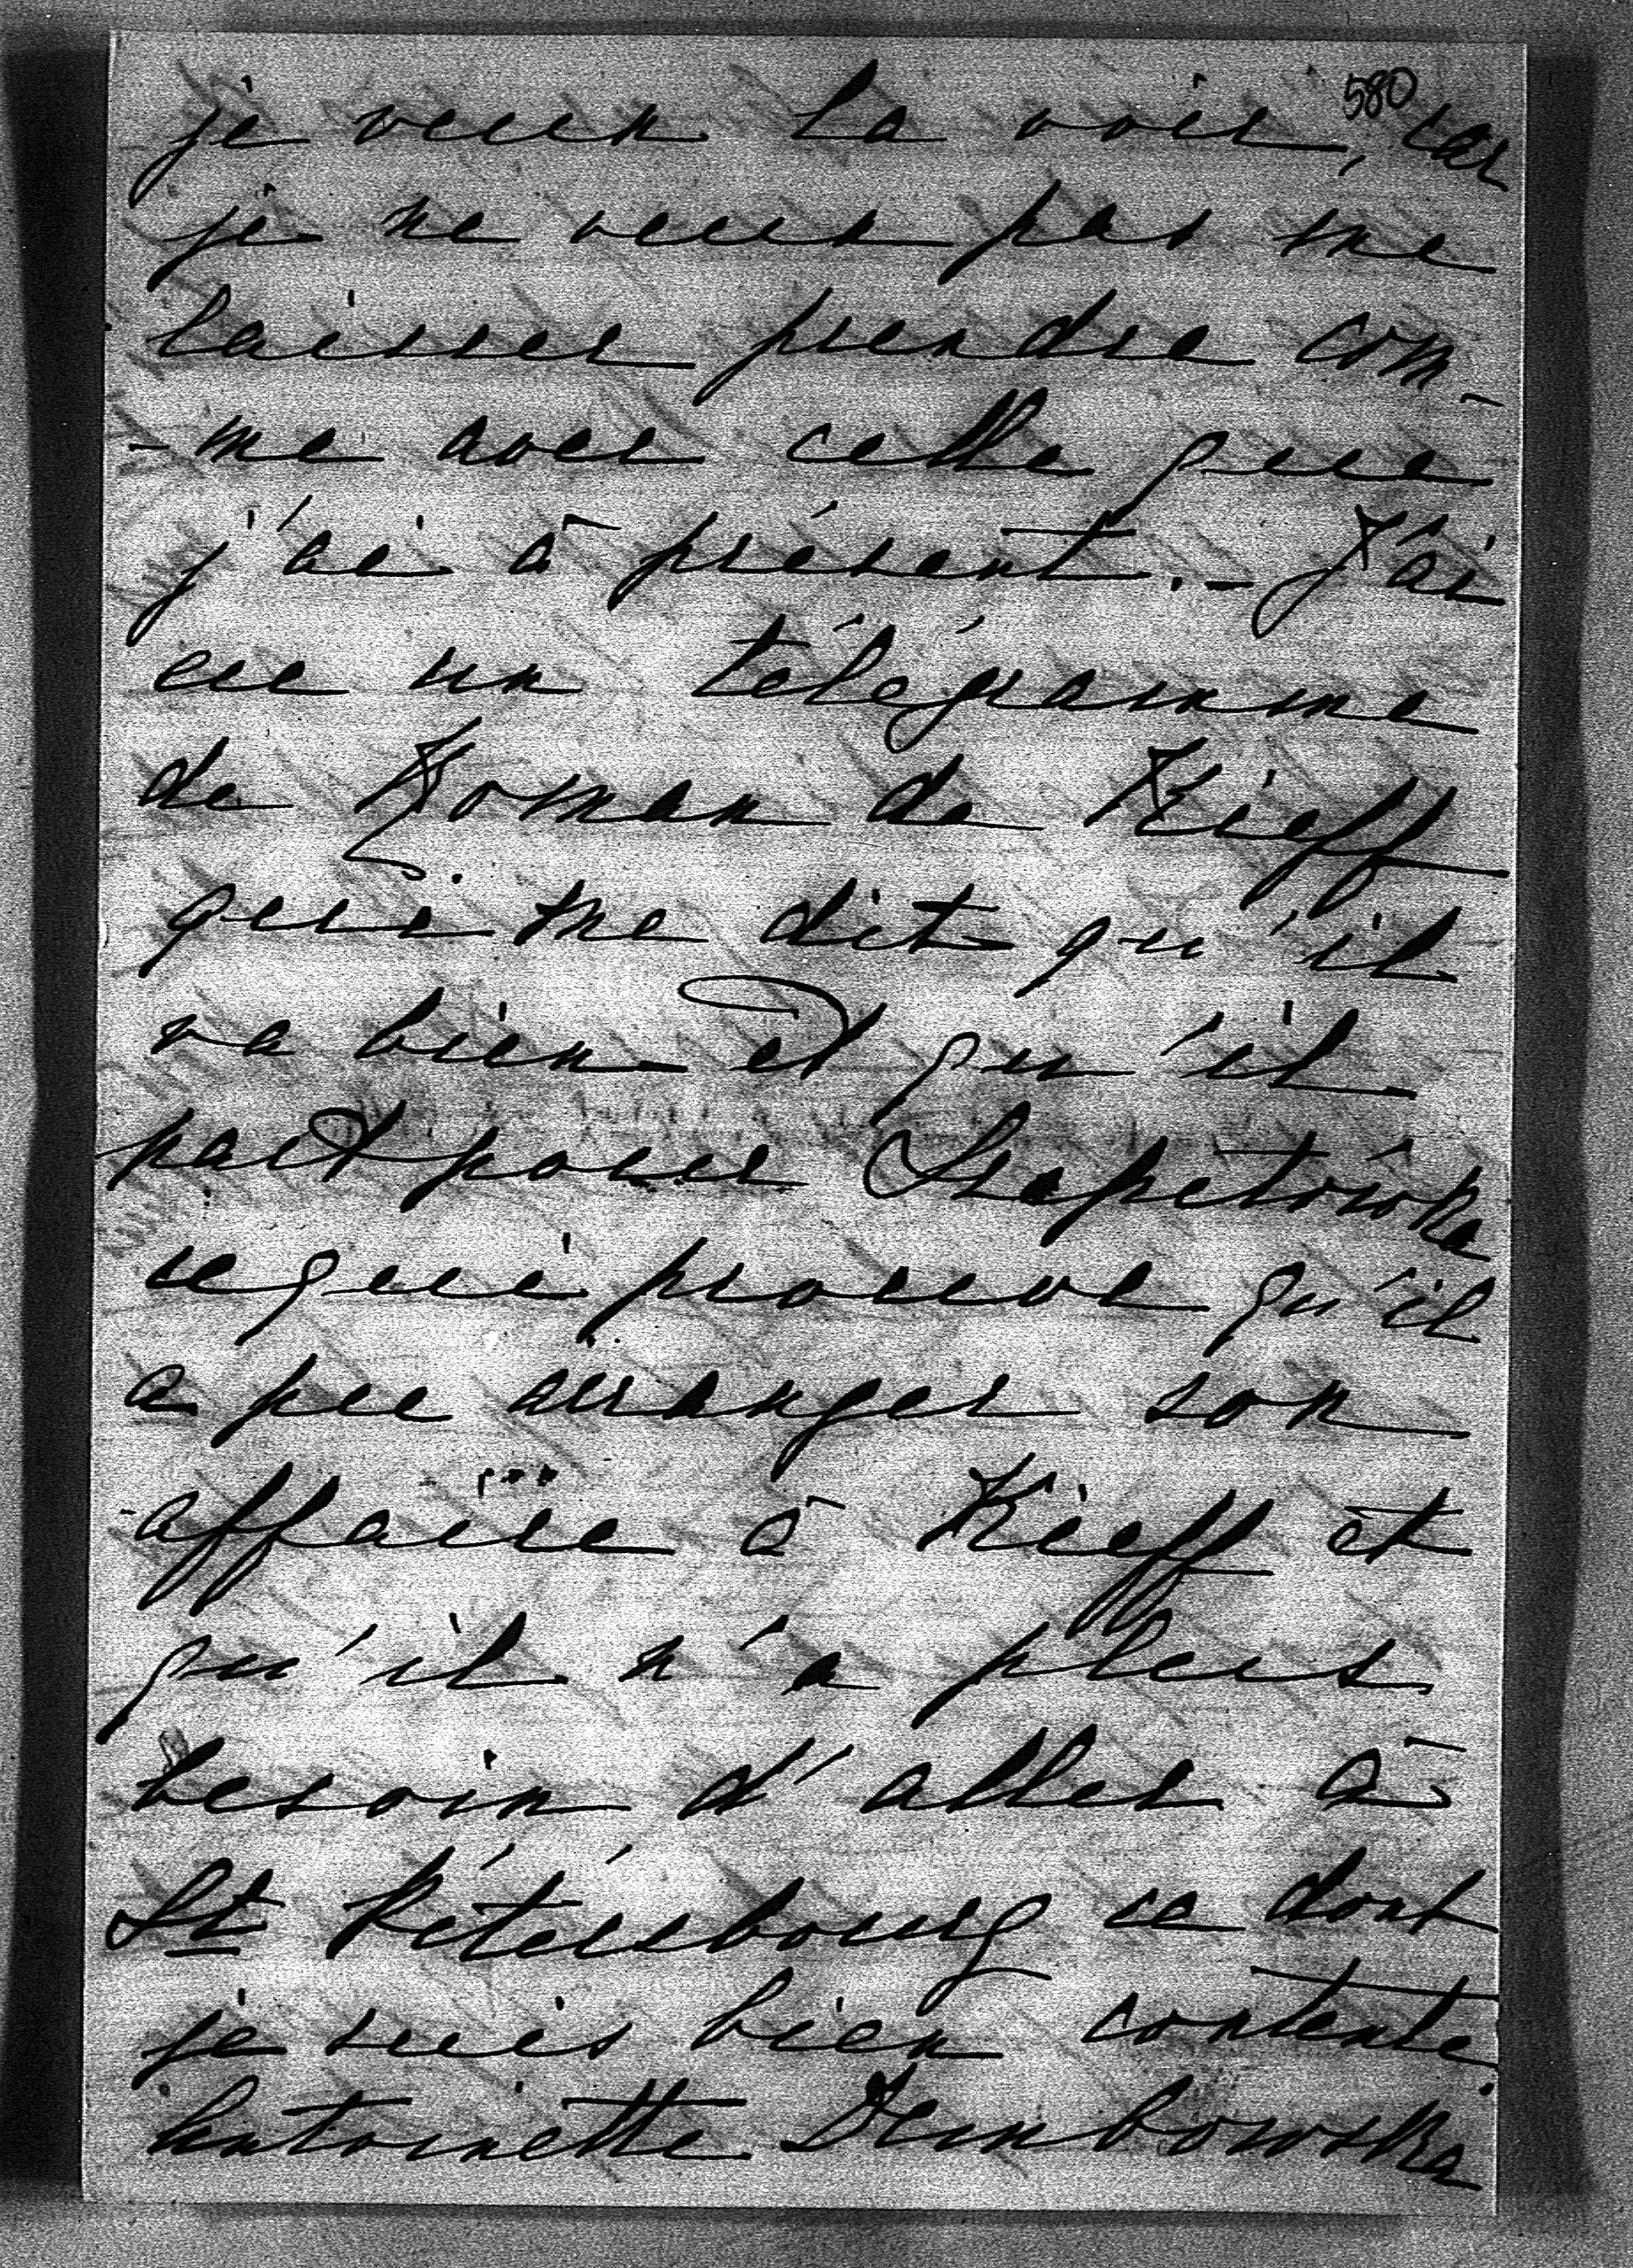 580
je veux la voir, car
je ne veux pas me
laisser prendre com-
-me avec celle que
j'ai à présent. - J'ai
eu un télégramme
de Roman de Kieff
qui me dit qu'il
va bien et qu'il
part pour Szepetówka
ce qui prouve qu'il
a pu arranger son
affaire à Kieff et
qu'il n'a plus
besoin d'aller à
St Pétersbourg ce dont
je suis bien contente
Antoinette Dembowska